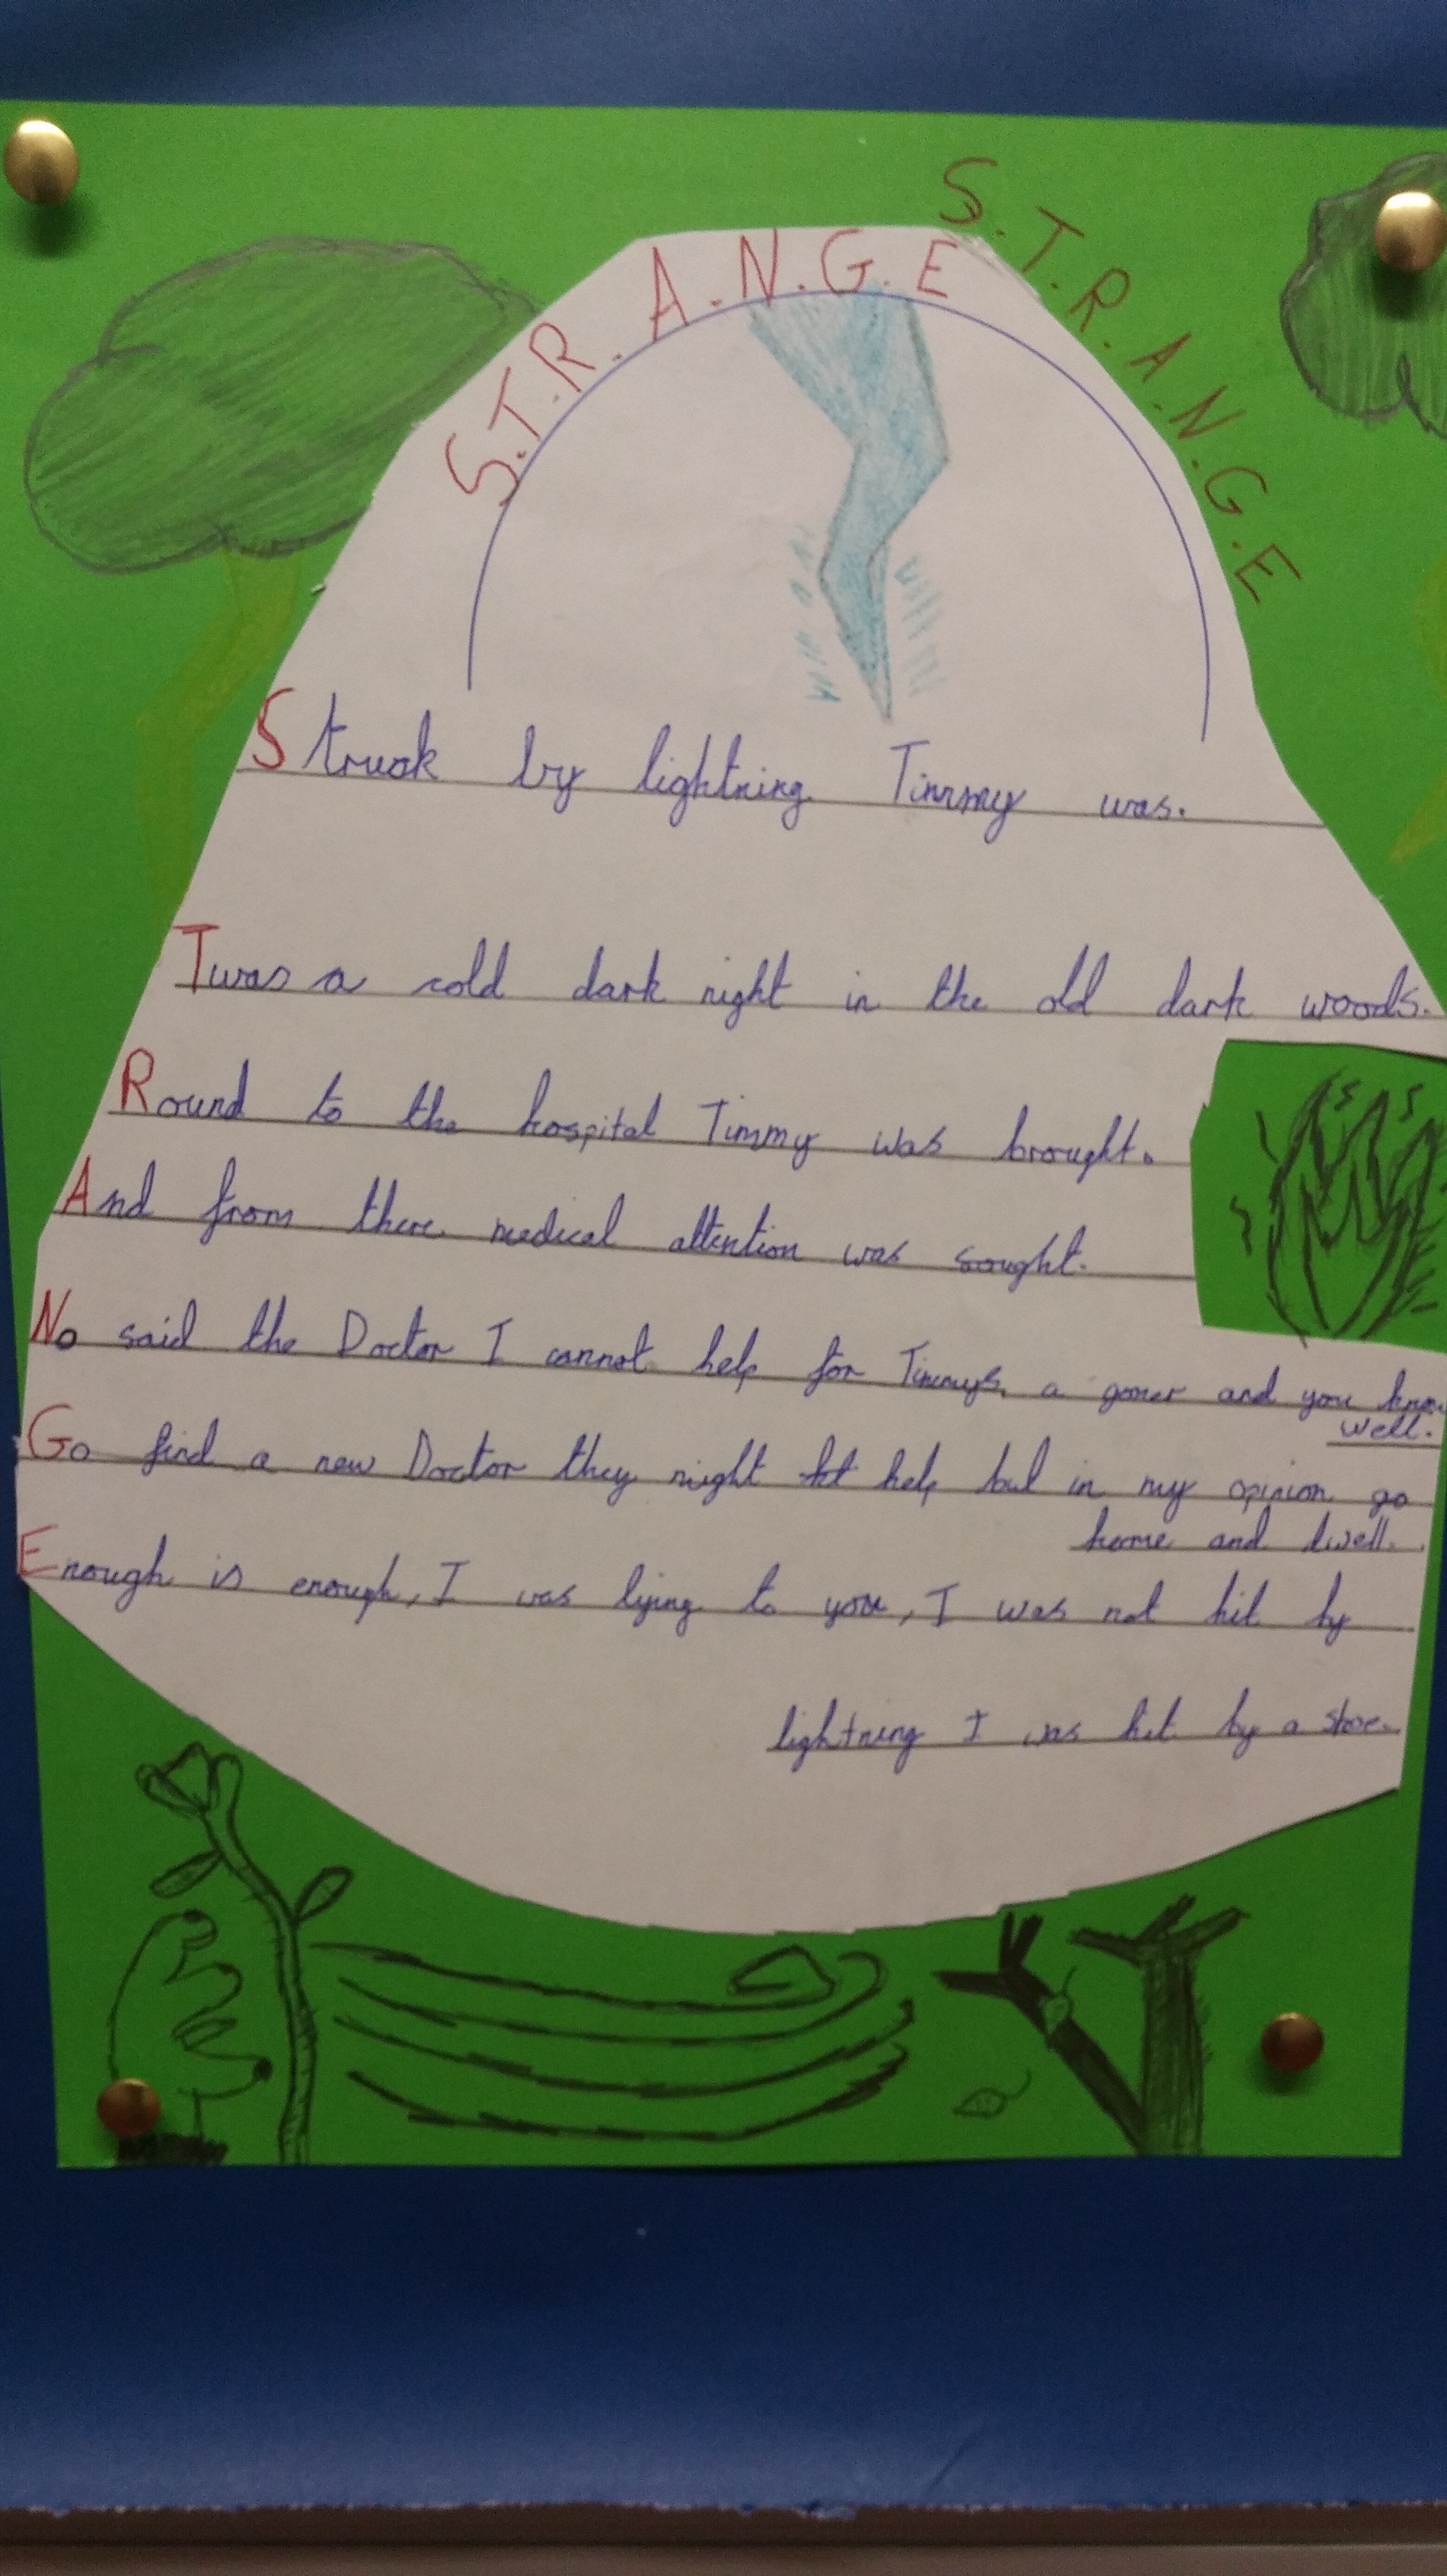 S.T.R.A.N.G.E
S.T.R.A.N.G.E
Struck by lightning Timmy was.
Twas a cold dark night in the old dark woods.
Round to the hospital Timmy was brought.
And from there medical attention was sought.
No said the Doctor I cannot help for Timmys a goner and you know
well.
Go find a new Doctor they might help but in my opinion go
home and dwell.
Enough is enough, I was lying to you, I was not hit by
lightning I was hit by a